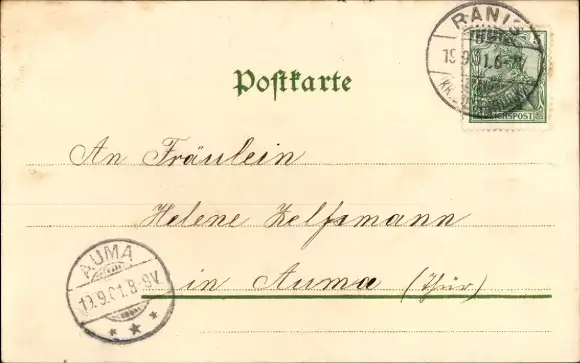 RANIS
19.9.01.6-7V
Postkarte
REICHSPOST
An Fräulein
Helene Zelfsmann
in Auma (Thür)
AUMA
19.9.01.8-9V